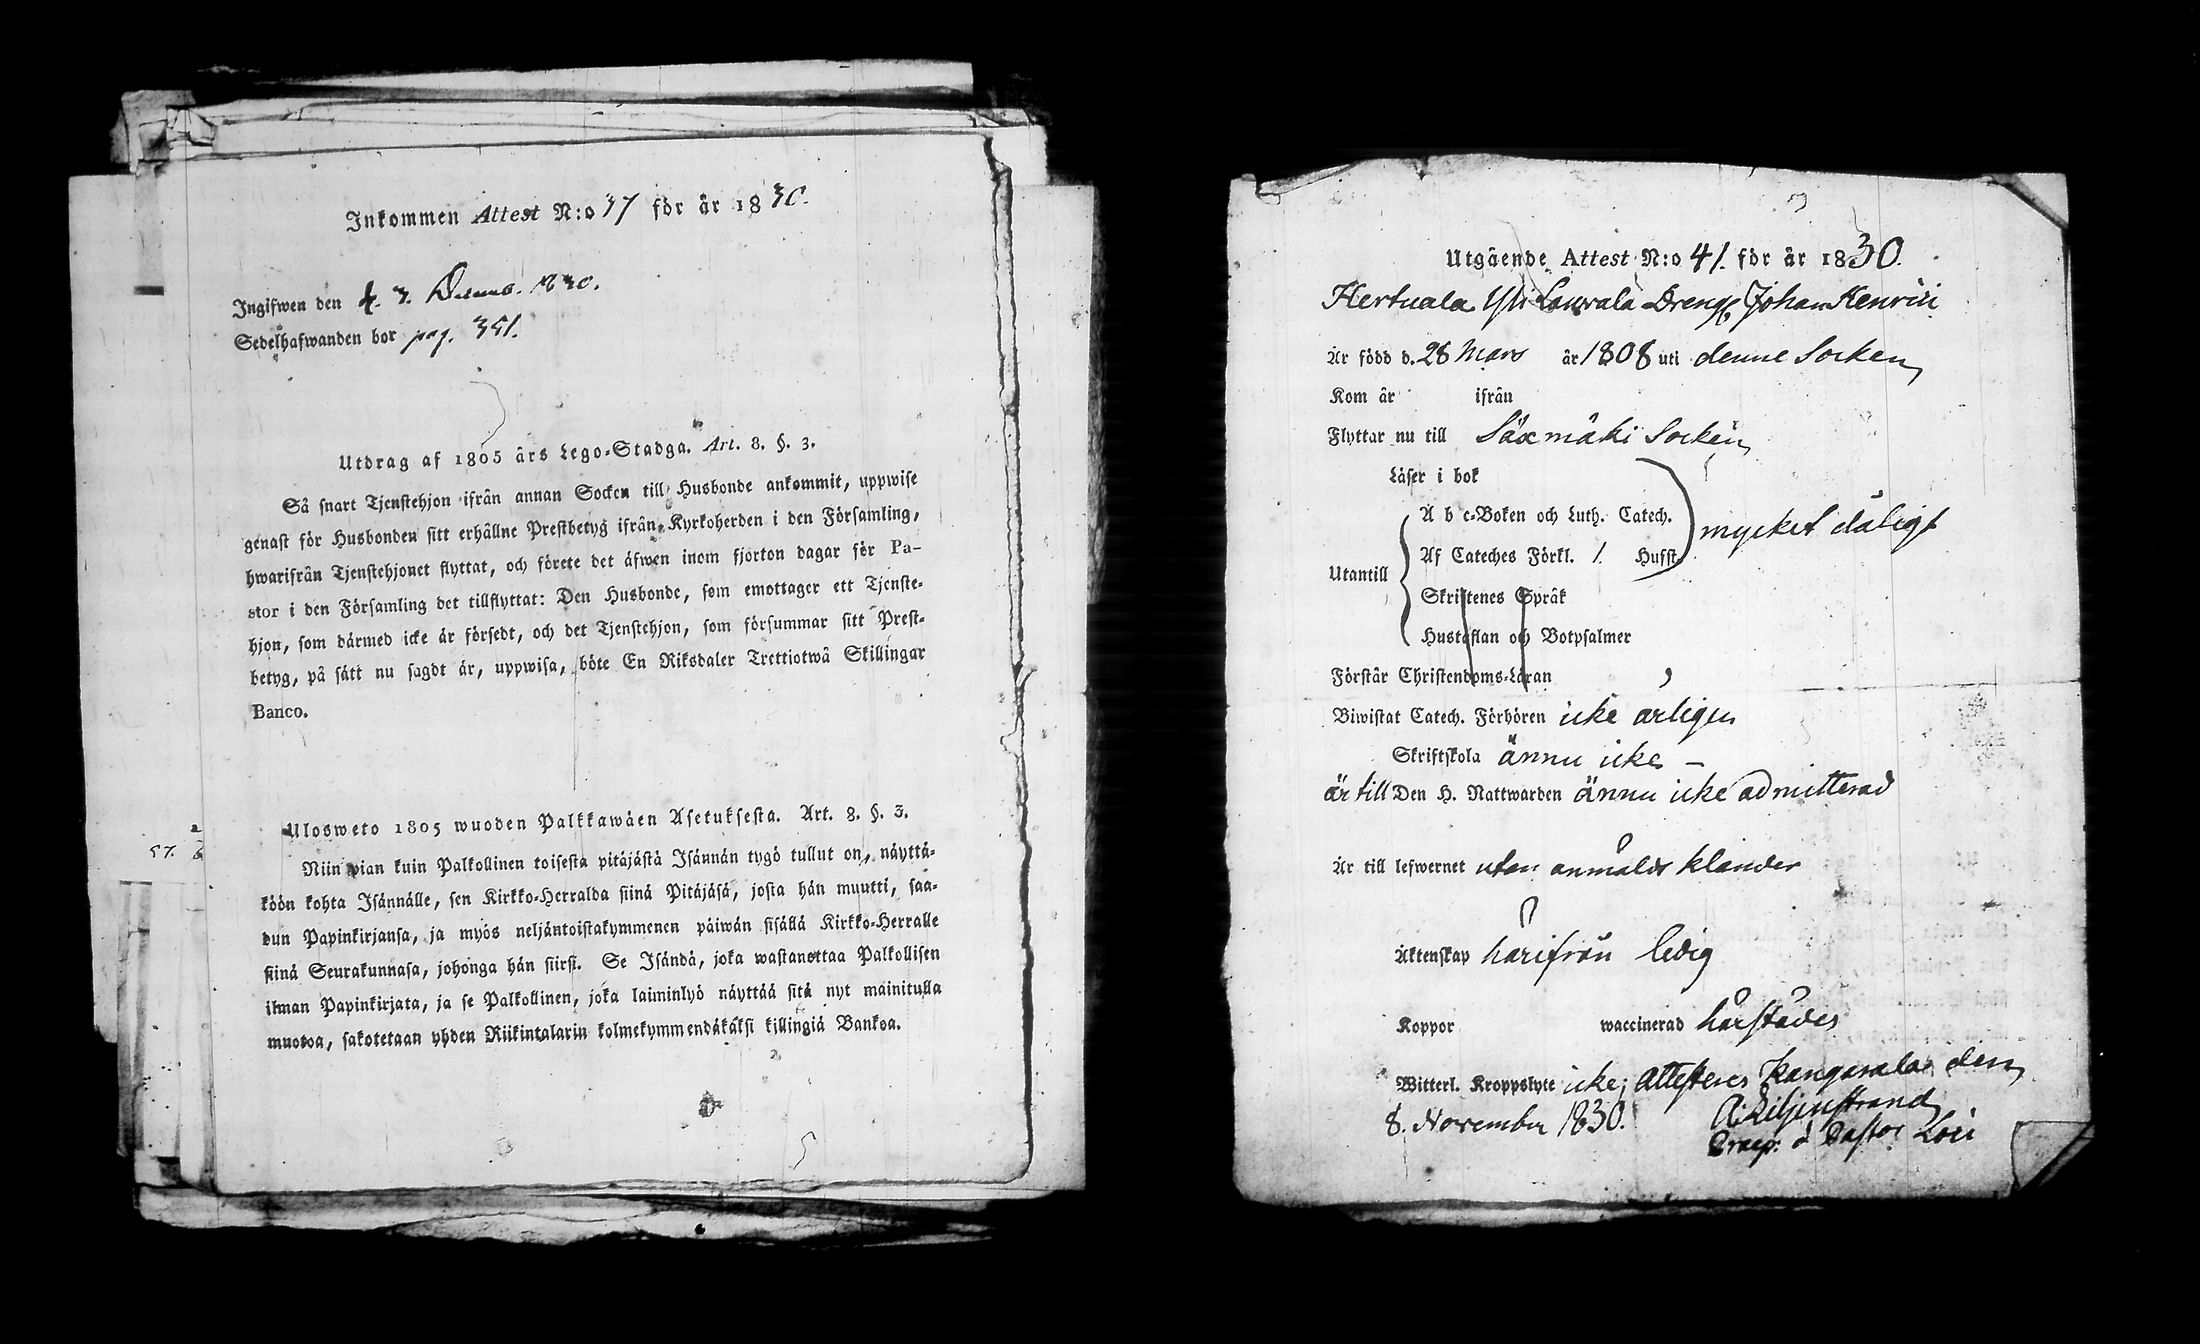 Inkommen Attest N:o 37 för år 1830.
Ingifwen den d. 7. Decemb. 1830.
Sedelhafwanden bor pag. 351.
Utdrag af 1805 års Lego-Stadga. Art. 8. §. 3.
Så snart Tjenstehjon ifrån annan Socken till Husbonde ankommit, uppwise
genast för Husbonden sitt erhållne Prestbetyg ifrån Kyrkoherden i den Församling,
hwarifrån Tjenstehjonet flyttat, och förete det äfwen inom fjorton dagar för Pa-
stor i den Församling det tillflyttat: Den Husbonde, som emottager ett Tjenste-
hjon, som därmed icke är försedt, och det Tjenstehjon, som försummar sitt Prest-
betyg, på sätt nu sagdt är, uppwisa, böte En Riksdaler Trettiotwå Skillingar
Banco.
Ulosweto 1805 wuoden Palkkawäen Asetuksesta. Art. 8. §. 3.
Niin pian kuin Palkollinen toisesta pitäjästä Isännän tygö tullut on, näyttä-
köön kohta Isännälle, sen Kirkko-Herralda siinä Pitäjäsä, josta hän muutti, saa-
dun Papinkirjansa, ja myös neljäntoistakymmenen päiwän sisällä Kirkko-Herralle
siinä Seurakunnasa, johonga hän siirsi. Se Isändä, joka wastanottaa Palkollisen
ilman Papinkirjata, ja se Palkollinen, joka laiminlyö näyttää sitä nyt mainitulla
muotoa, sakotetaan yhden Riikintalarin kolmekymmendäkäksi killingiä Bankoa.
57.
Utgående Attest N:o 41. för år 1830.
Hertuala Yli Laurala Dreng Johan Henrici
Är född d. 28 Mars år 1808 uti denne Socken
Kom år ifrån
Flyttar nu till Säxmäki Socken
Läser i bok
A b c-Boken och Luth. Catech.
mycket dåligt
Af Cateches Förkl. 1. Hufst.
Utantill
Skriftenes Språk
Hustaflan och Botpsalmer
Förstår Christendoms-Läran
Biwistat Catech. Förhören icke årligen
Skriftskola ännu icke –
är till Den H. Nattwarden ännu icke admitterad
Är till lefwernet utan anmäldt klander
Äktenskap härifrån ledig
Koppor waccinerad härstädes
Witterl. Kroppslyte icke; Attesteres Kangasala den
8. November 1830. A: Liljenstrand
Praep. & Pastor Loci